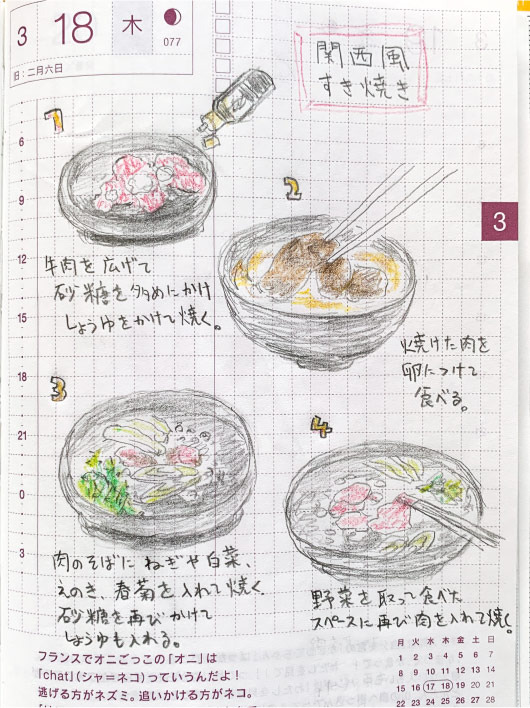 3 18 木
077
旧:二月六日
関西風
すき焼き
1
2
3
牛肉を広げて
砂糖を多めにかけ
しょうゆをかけて焼く。
焼けた肉を
卵につけて
食べる。
3
4
肉のそばに ねぎや白菜、
えのき、春菊を入れて焼く
砂糖を再びかけて
しょうゆも入れる。
野菜を取って食べた
スペースに再び肉を入れて焼く。
6
9
12
15
18
21
0
3
フランスでオニごっこの「オニ」は
「chat」(シャ=ネコ)っていうんだよ!
逃げる方がネズミ。追いかける方がネコ。
月 火 水 木 金 土 日
1 2 3 4 5 6 7
8 9 10 11 12 13 14
15 16 17 18 19 20 21
22 23 24 25 26 27 28